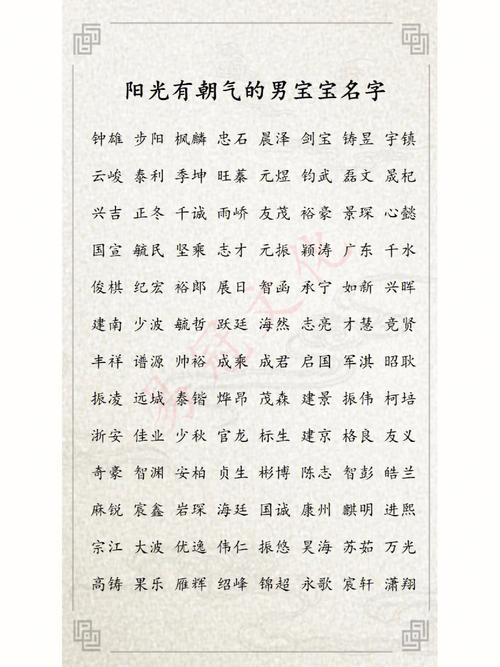 阳光有朝气的男宝宝名字
钟雄 步阳 枫麟 忠石 晨泽 剑宝 铸昱 宇镇
云峻 泰利 季坤 旺蓁 元煜 钧武 磊文 晟杞
兴吉 正冬 千诚 雨峤 友茂 裕豪 景琛 心懿
国宣 毓民 坚乘 志才 元振 颖涛 广东 千水
俊棋 纪宏 裕郎 展日 智函 承宁 如新 兴晖
建南 少波 毓哲 跃廷 海然 志亮 才慧 竞贤
丰祥 谱源 帅裕 成乘 成君 启国 军淇 昭耿
振凌 远城 泰锴 烨昂 茂森 建景 振伟 柯培
浙安 佳业 少秋 官龙 标生 建京 格良 友义
奇豪 智渊 安柏 贞生 彬博 陈志 智彭 皓兰
麻锐 宸鑫 岩琛 海廷 国诚 康州 麒明 进熙
宗江 大波 优逸 伟仁 振悠 昊海 苏茹 万光
高铸 果乐 雁辉 绍峰 锦超 永歌 宸轩 潇翔
易冠文化